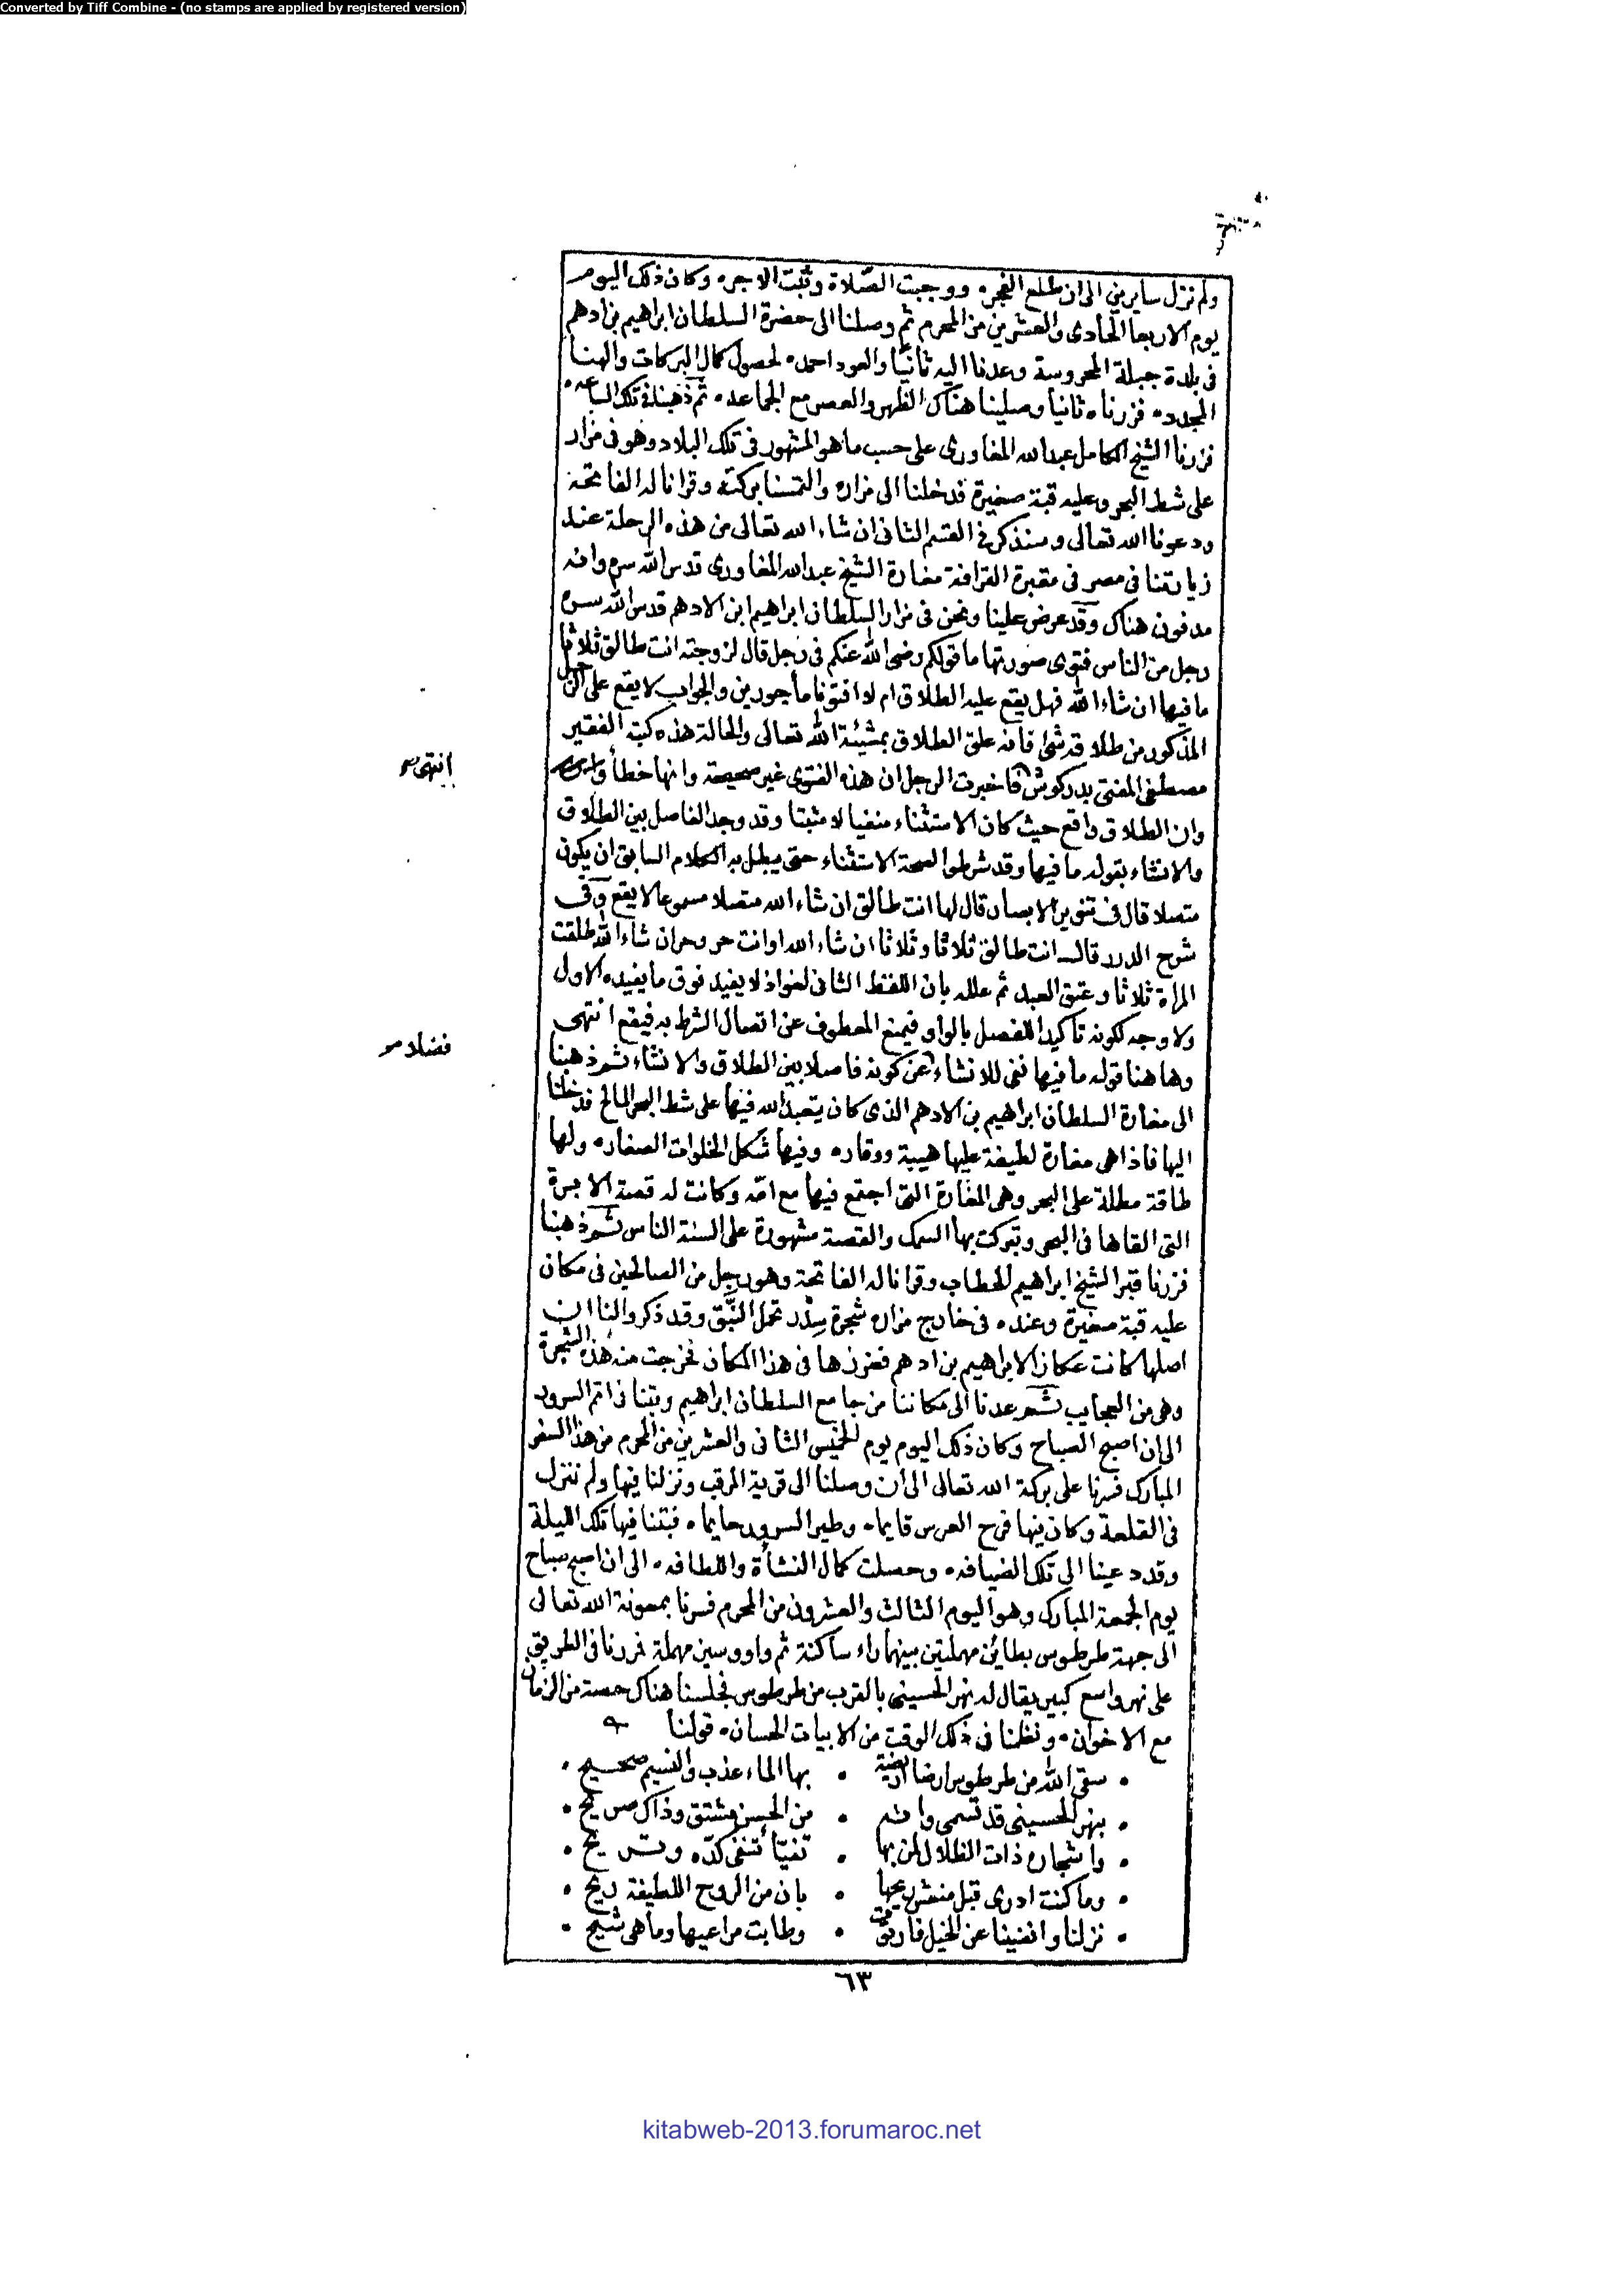 Converted by Tiff Combine - (no stamps are applied by registered version)
ولم نزل سايرين الى ان طلع الفجر ووجبت الصّلاة وثبت الاجر وكان ذلك اليوم
يوم الاربعا الحادى والعشرين من المحرم ثم وصلنا الى حضرة السلطان ابراهيم بن ادهم
فى بلدة جبلة المحروسة وعدنا اليه ثانيًا والعود احمد لحصول كمال البركات والهنا
المجدد فزرناه ثانيا وصلينا هناك الظهر والعصر مع الجماعه ثم ذهبنا فى تلك الساعه
فزرنا الشيخ الكامل عبدالله المغاورى على حسب ما هو المشهور فى تلك البلاد وهو فى مزار
على شط البحر وعليه قبة صغيرة فدخلنا الى مزاره والتمسنا بركته وقرانا له الفاتحة
ودعونا الله تعالى وسنذكر فى القسم الثانى ان شاء الله تعالى من هذه الرحلة عند
زيارتنا فى مصر فى مقبرة القرافة مغارة الشيخ عبدالله المغاورى قدس الله سره وانه
مدفون هناك وقد عرض علينا ونحن فى مزار السلطان ابراهيم ابن الادهم قدس الله سره
رجل من الناس فتوى صورتها ما قولكم رضى الله عنكم فى رجل قال لزوجته انت طالق ثلاثا
ما فيها ان شاء الله فهل يقع عليه الطلاق ام لا افتونا مأجورين والجواب لا يقع على الرجل
المذكور من طلاقه شئ فانه علق الطلاق بمشيئة الله تعالى والحالة هذه كتبه الفقير
مصطفى المفتى بدركوش فاخبرت الرجل ان هذه الفتوى غير صحيحة وانها خطأ
انتهى
وان الطلاق واقع حيث كان الاستثناء منفيا لا مثبتا وقد وجد الفاصل بين الطلاق
والانشاء بقوله ما فيها وقد شرطوا لصحة الاستثناء حتى يبطل به الكلام السابق ان يكون
متصلا قال فى تنوير الابصار قال لها انت طالق ان شاء الله متصلا مسموعا لا يقع وفى
شرح الدرر قال انت طالق ثلاثا وثلاثا ان شاء الله او انت حر وحر ان شاء الله طلقت
المراة ثلاثا وعتق العبد ثم علله بان اللفظ الثانى لغو اذ لا يفيد فوق ما يفيده الاول
ولا وجه لكونه تأكيدا للفصل بالواو فيمنع المعطوف عن اتصال الشرط به فيقع انتهى
فضلا
وها هنا قوله ما فيها نفى للانشاء عن كونه فاصلا بين الطلاق والانشاء ثم ذهبنا
الى مغارة السلطان ابراهيم بن الادهم الذى كان يتعبد الله فيها على شط البحر المالح فدخلنا
اليها فاذا هى مغارة لطيفة عليها هيبة ووقار وفيها شكل الخلوات الصغار ولها
طاقة مطلة على البحر وهى المغارة التى اجتمع فيها مع امّه وكانت له قصة الابرة
التى القاها فى البحر وتبركت بها السمك والقصة مشهورة على السنة الناس ثم ذهبنا
فزرنا قبر الشيخ ابراهيم الحطاب وقرانا له الفاتحة وهو رجل من الصالحين فى مكان
عليه قبة صغيرة وعنده فى خارج مزاره شجرة سِدْر تحمل النَّبْق وقد ذكروا لنا ان
اصلها كانت عكاز الابراهيم بن ادهم فغرزها فى هذا المكان فخرجت منه هذه الشجرة
وهى من العجايب ثم عدنا الى مكاننا من جامع السلطان ابراهيم وبتنا فى اتم السرور
الى ان اصبح الصباح وكان ذلك اليوم يوم الخميس الثانى والعشرين من المحرم من هذا السفر
المبارك فسرنا على بركة الله تعالى الى ان وصلنا الى قرية المرقب ونزلنا فيها ولم ننزل
فى القلعة وكان فيها فرح العرس قايما وطير السرور حايما فبتنا فيها تلك الليلة
وقد دعينا الى تلك الضيافه وحصلت كمال النشأة واللطافه الى ان اصبح صباح
يوم الجمعة المبارك وهو اليوم الثالث والعشرون من المحرم فسرنا بمعونة الله تعالى
الى جهة طرطوس بطائين مهملتين بينهما راء ساكنة ثم واو وسين مهملة فمررنا فى الطريق
على نهر واسع كبير يقال له نهر الحسينى بالقرب من طرطوس فجلسنا هناك حصة من الزمان
مع الاخوان ونظمنا فى ذلك الوقت من الابيات الحسان قولنا
سقى الله من طرطوس ارضا اريضة • بها الماء عذب والنسيم صحيح
بنهر الحسينى قد تسمى وانه • من الحسن مشتق وذاك صريح
واشجاره ذات الظلال لمن بها • تفيّأ تنفى كدّه وتريح
وما كنت ادرى قبل منشى ريحها • بان من الروح اللطيفة ريح
نزلنا وافضينا عن الخيل فارتمت • وطابت مراعيها وما هى شيح
٦٣
kitabweb-2013.forumaroc.net